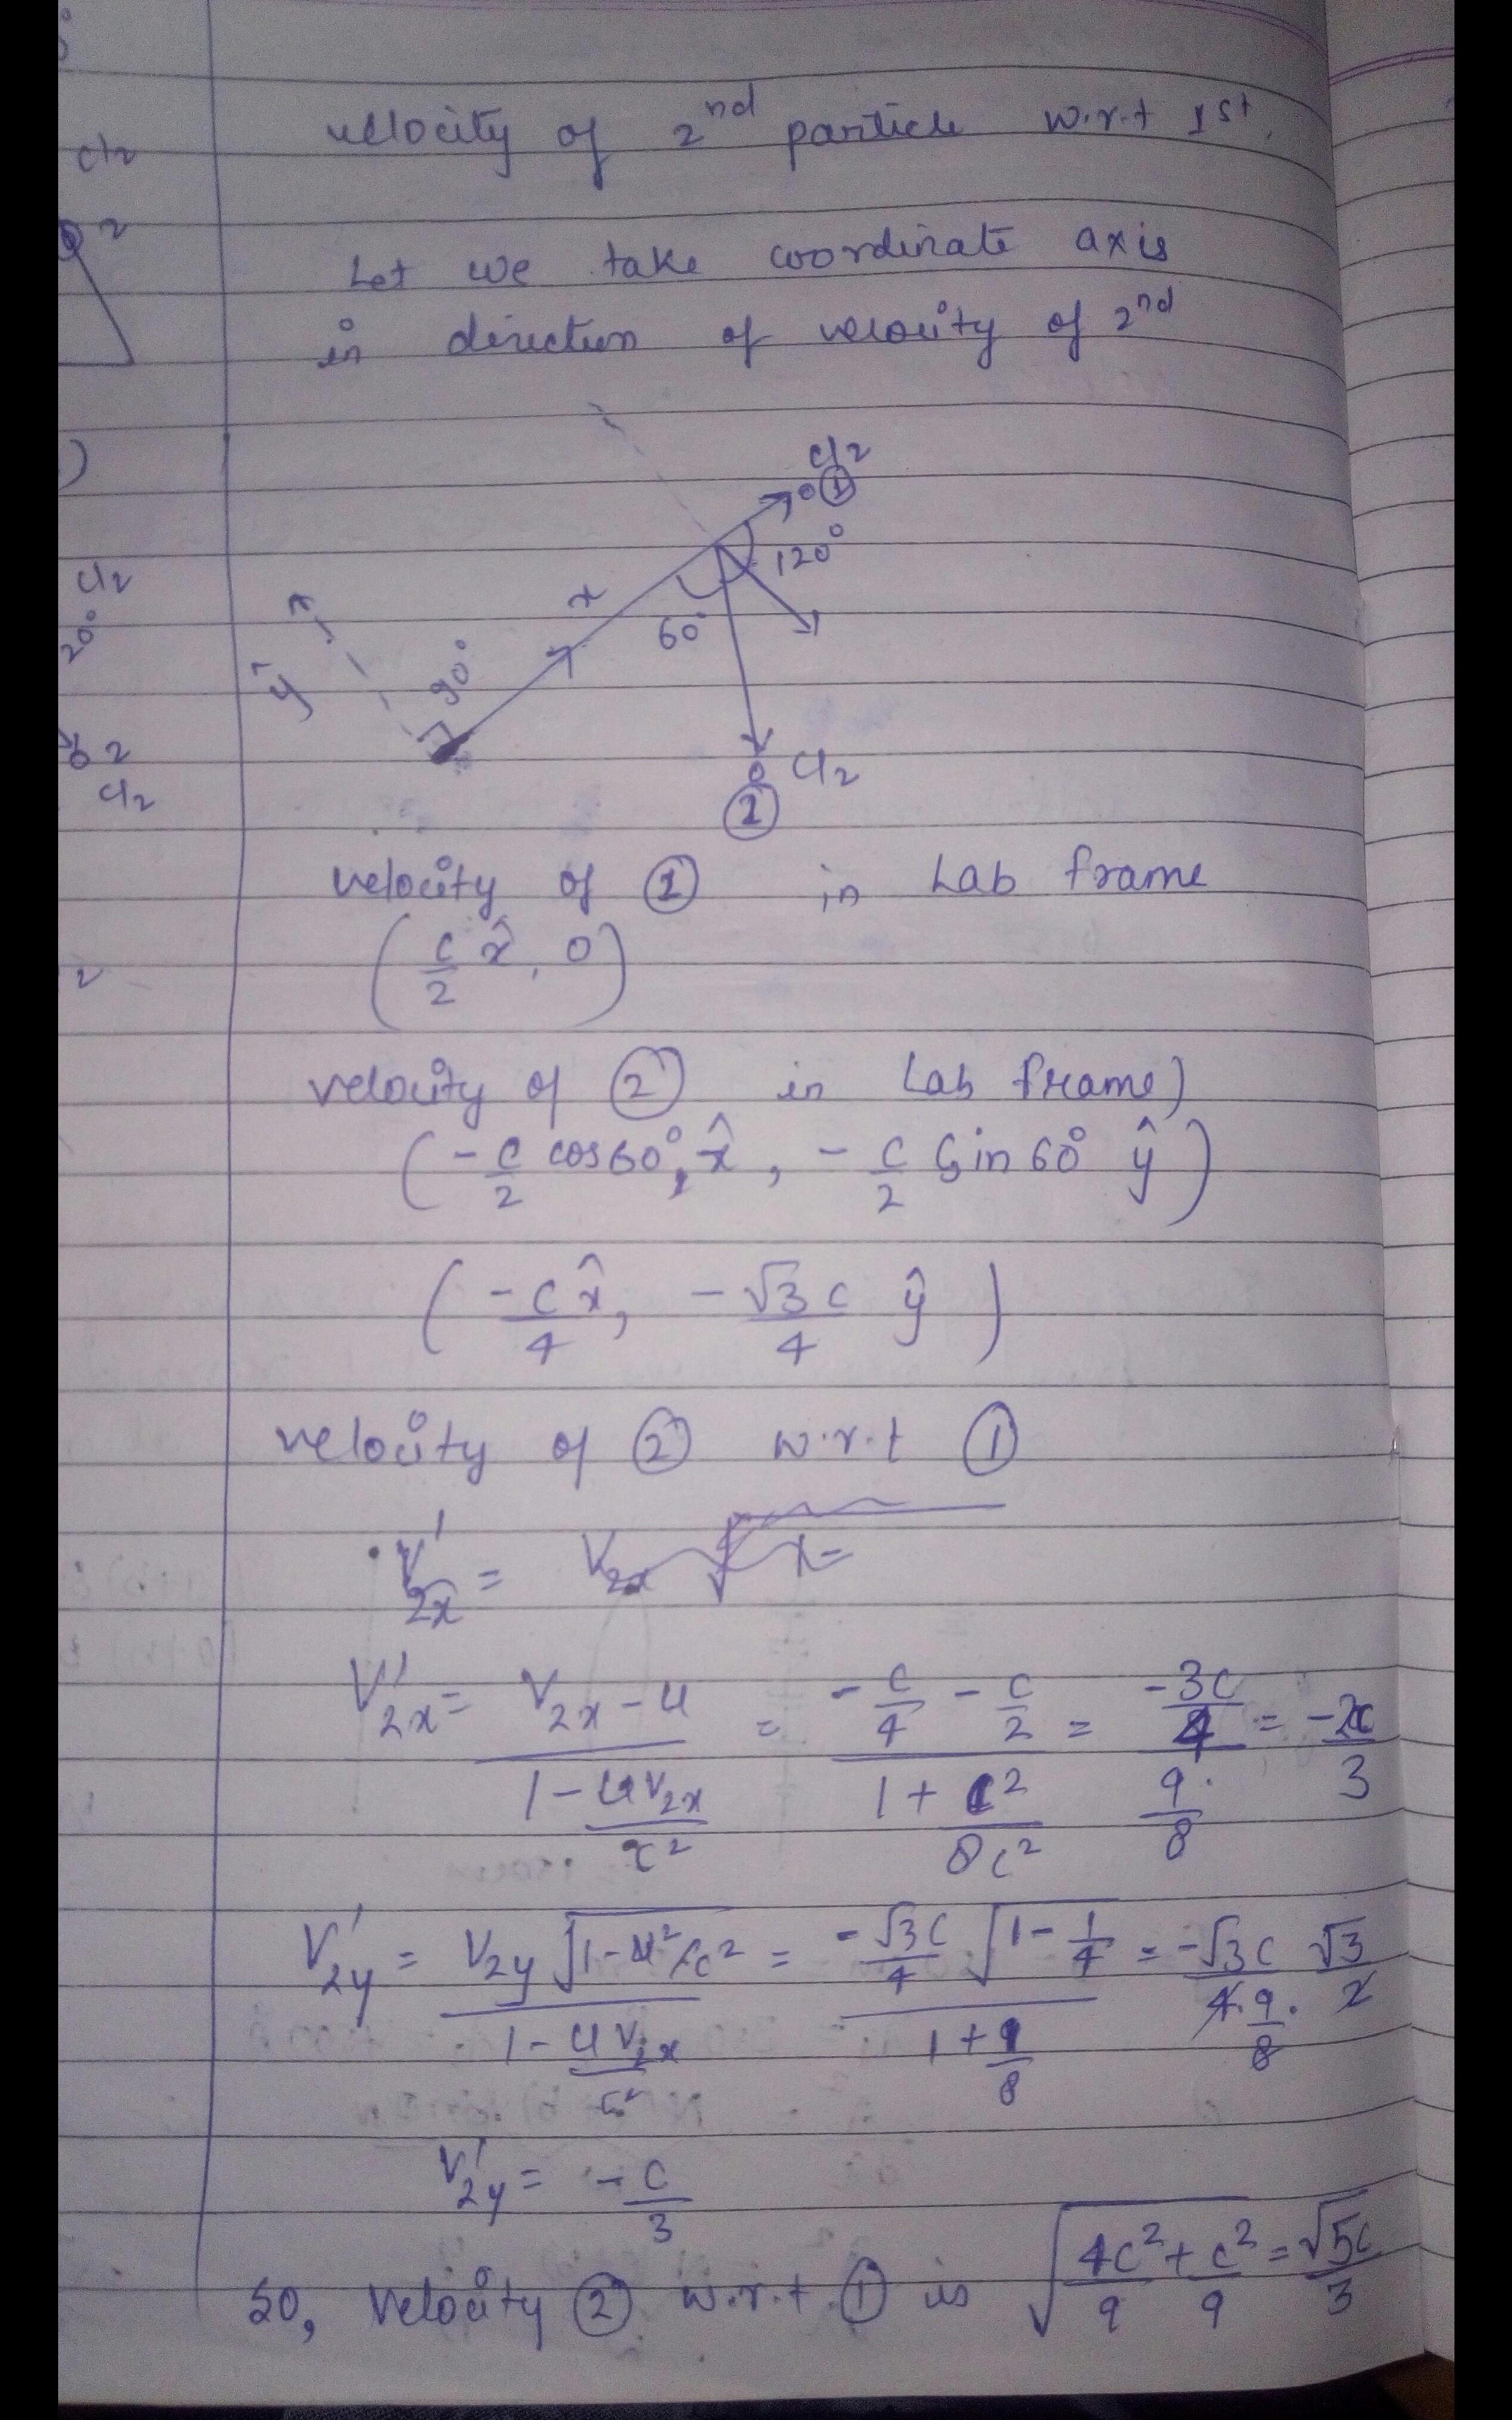 c/2
2
)
c/2
20°
2
c/2
2
velocity of 2nd particle w.r.t 1st.
Let we take coordinate axis
in direction of velocity of 2nd
c/2
①
120°
x
60°
90°
ŷ
c/2
②
velocity of ① in Lab frame
(c/2 x̂, 0)
velocity of ② in Lab frame)
(-c/2 cos60° x̂, -c/2 Sin 60° ŷ)
(-c/4 x̂, -√3c/4 ŷ)
velocity of ② w.r.t ①
V'2x = V2x √ 1-
V'2x = (V2x - u)/(1 - uV2x/c²) = (-c/4 - c/2)/(1 + c²/8c²) = (-3c/4)/(9/8) = -2c/3
V'2y = V2y √(1-u²/c²)/(1 - uV2x/c²) = (-√3c/4 √(1 - 1/4))/(1 + 1/8) = -√3c/(4·9/8) · √3/2
V'2y = -c/3
So, velocity ② w.r.t. ① is √(4c²/9 + c²/9) = √5c/3